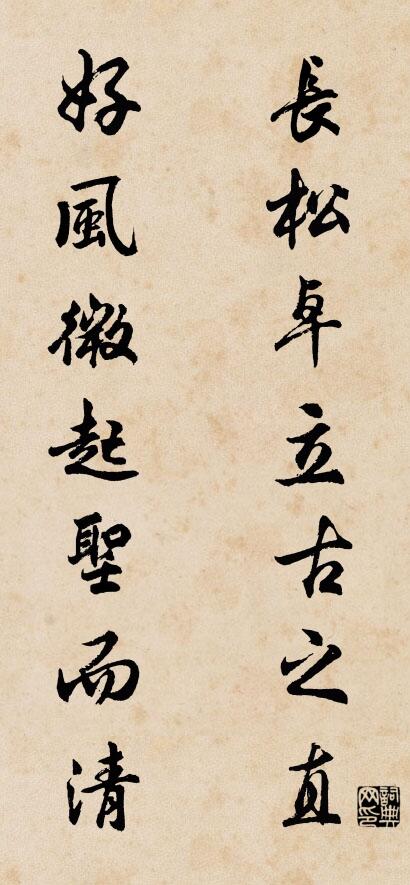 長松卓立古之直
好風微起聖而清
詞典网印